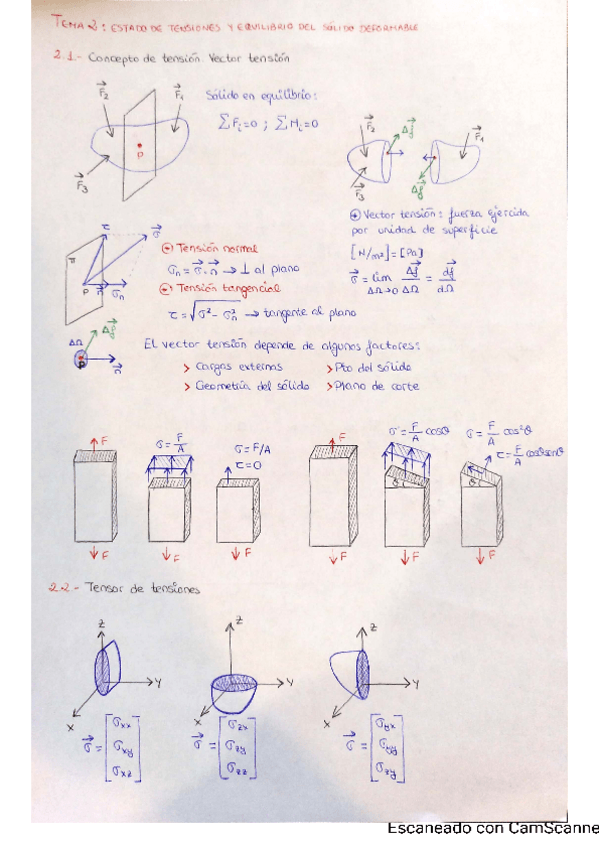 TEMA 2: ESTADO DE TENSIONES Y EQUILIBRIO DEL SÓLIDO DEFORMABLE
2.1.- Concepto de tensión. Vector tensión
F₂ F₁
Sólido en equilibrio:
∑Fᵢ=0 ; ∑Mᵢ=0
P
F₃
F₂ Δf F₁
F₃ Δf
→ Vector tensión: fuerza ejercida
por unidad de superficie
[N/m²]=[Pa]
σ = lim ΔΩ→0 Δf/ΔΩ = df/dΩ
τ σ
π
P n σₙ
→ Tensión normal
σₙ = σ·n → ⊥ al plano
→ Tensión tangencial
τ = √σ² - σₙ² → tangente al plano
ΔΩ Δf
P n
El vector tensión depende de algunos factores:
> Cargas externas > Pto del sólido
> Geometría del sólido > Plano de corte
F σ = F/A σ = F/A F σ = F/A cosθ σ = F/A cos²θ
τ = 0 τ = F/A cosθsenθ
θ
F F F F F F
2.2.- Tensor de tensiones
Z Z Z
Y Y Y
X X X
σ = [σxx σxy σxz]
σ = [σzx σzy σzz]
σ = [σyx σyy σzy]
Escaneado con CamScanne